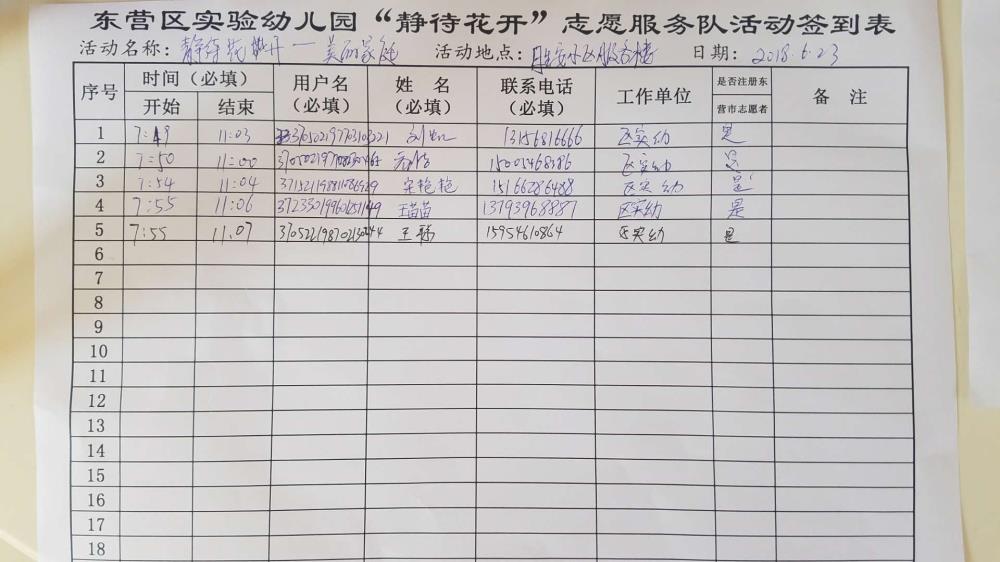 东营区实验幼儿园“静待花开”志愿服务队活动签到表
活动名称：静待花开—美丽家庭 活动地点：安小区服务楼 日期：2018.6.23
序号 时间（必填） 用户名（必填） 姓名（必填） 联系电话（必填） 工作单位 是否注册东营市志愿者 备注
开始 结束
1 7:49 11:03 13156816666 区实幼 是
2 7:50 11:00 15005468186 区实幼 是
3 7:54 11:04 宋艳艳 15166286488 区实幼 是
4 7:55 11:06 王苗苗 13793968887 区实幼 是
5 7:55 11:07 王 15954610864 区实幼 是
6
7
8
9
10
11
12
13
14
15
16
17
18